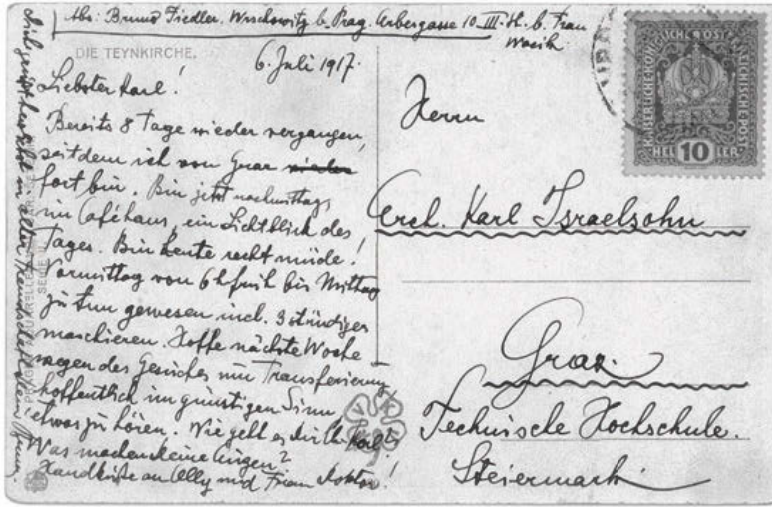 Abs: Bruno Fiedler. Wrschowitz b. Prag. Erbergasse 10 III. St. b. Frau
DIE TEYNKIRCHE.
6. Juli 1917.
Liebster Karl!
Bereits 8 Tage wieder vergangen,
seitdem ich von Graz wieder
fort bin. Bin jetzt nachmittags
im Caféhaus, ein Lichtblick des
Tages. Bin heute recht müde!
Vormittag von 6h früh bis Mittag
zu tun gewesen incl. 3 stündiges
marschieren. Hoffe nächste Woche
wegen des Gesuches um Transferierung
hoffentlich im günstigen Sinn
etwas zu hören. Wie geht es dir
Was machen deine Augen?
Handküsse an Elly und Frau Doktor!
Dich grüßt herzlichst in alter Freundschaft dein
Herrn
Karl Israelsohn
Graz.
Technische Hochschule.
Steiermark
KAISERLICHE KÖNIGLICHE ÖSTERREICHISCHE POST
HELLER
10
VKKV